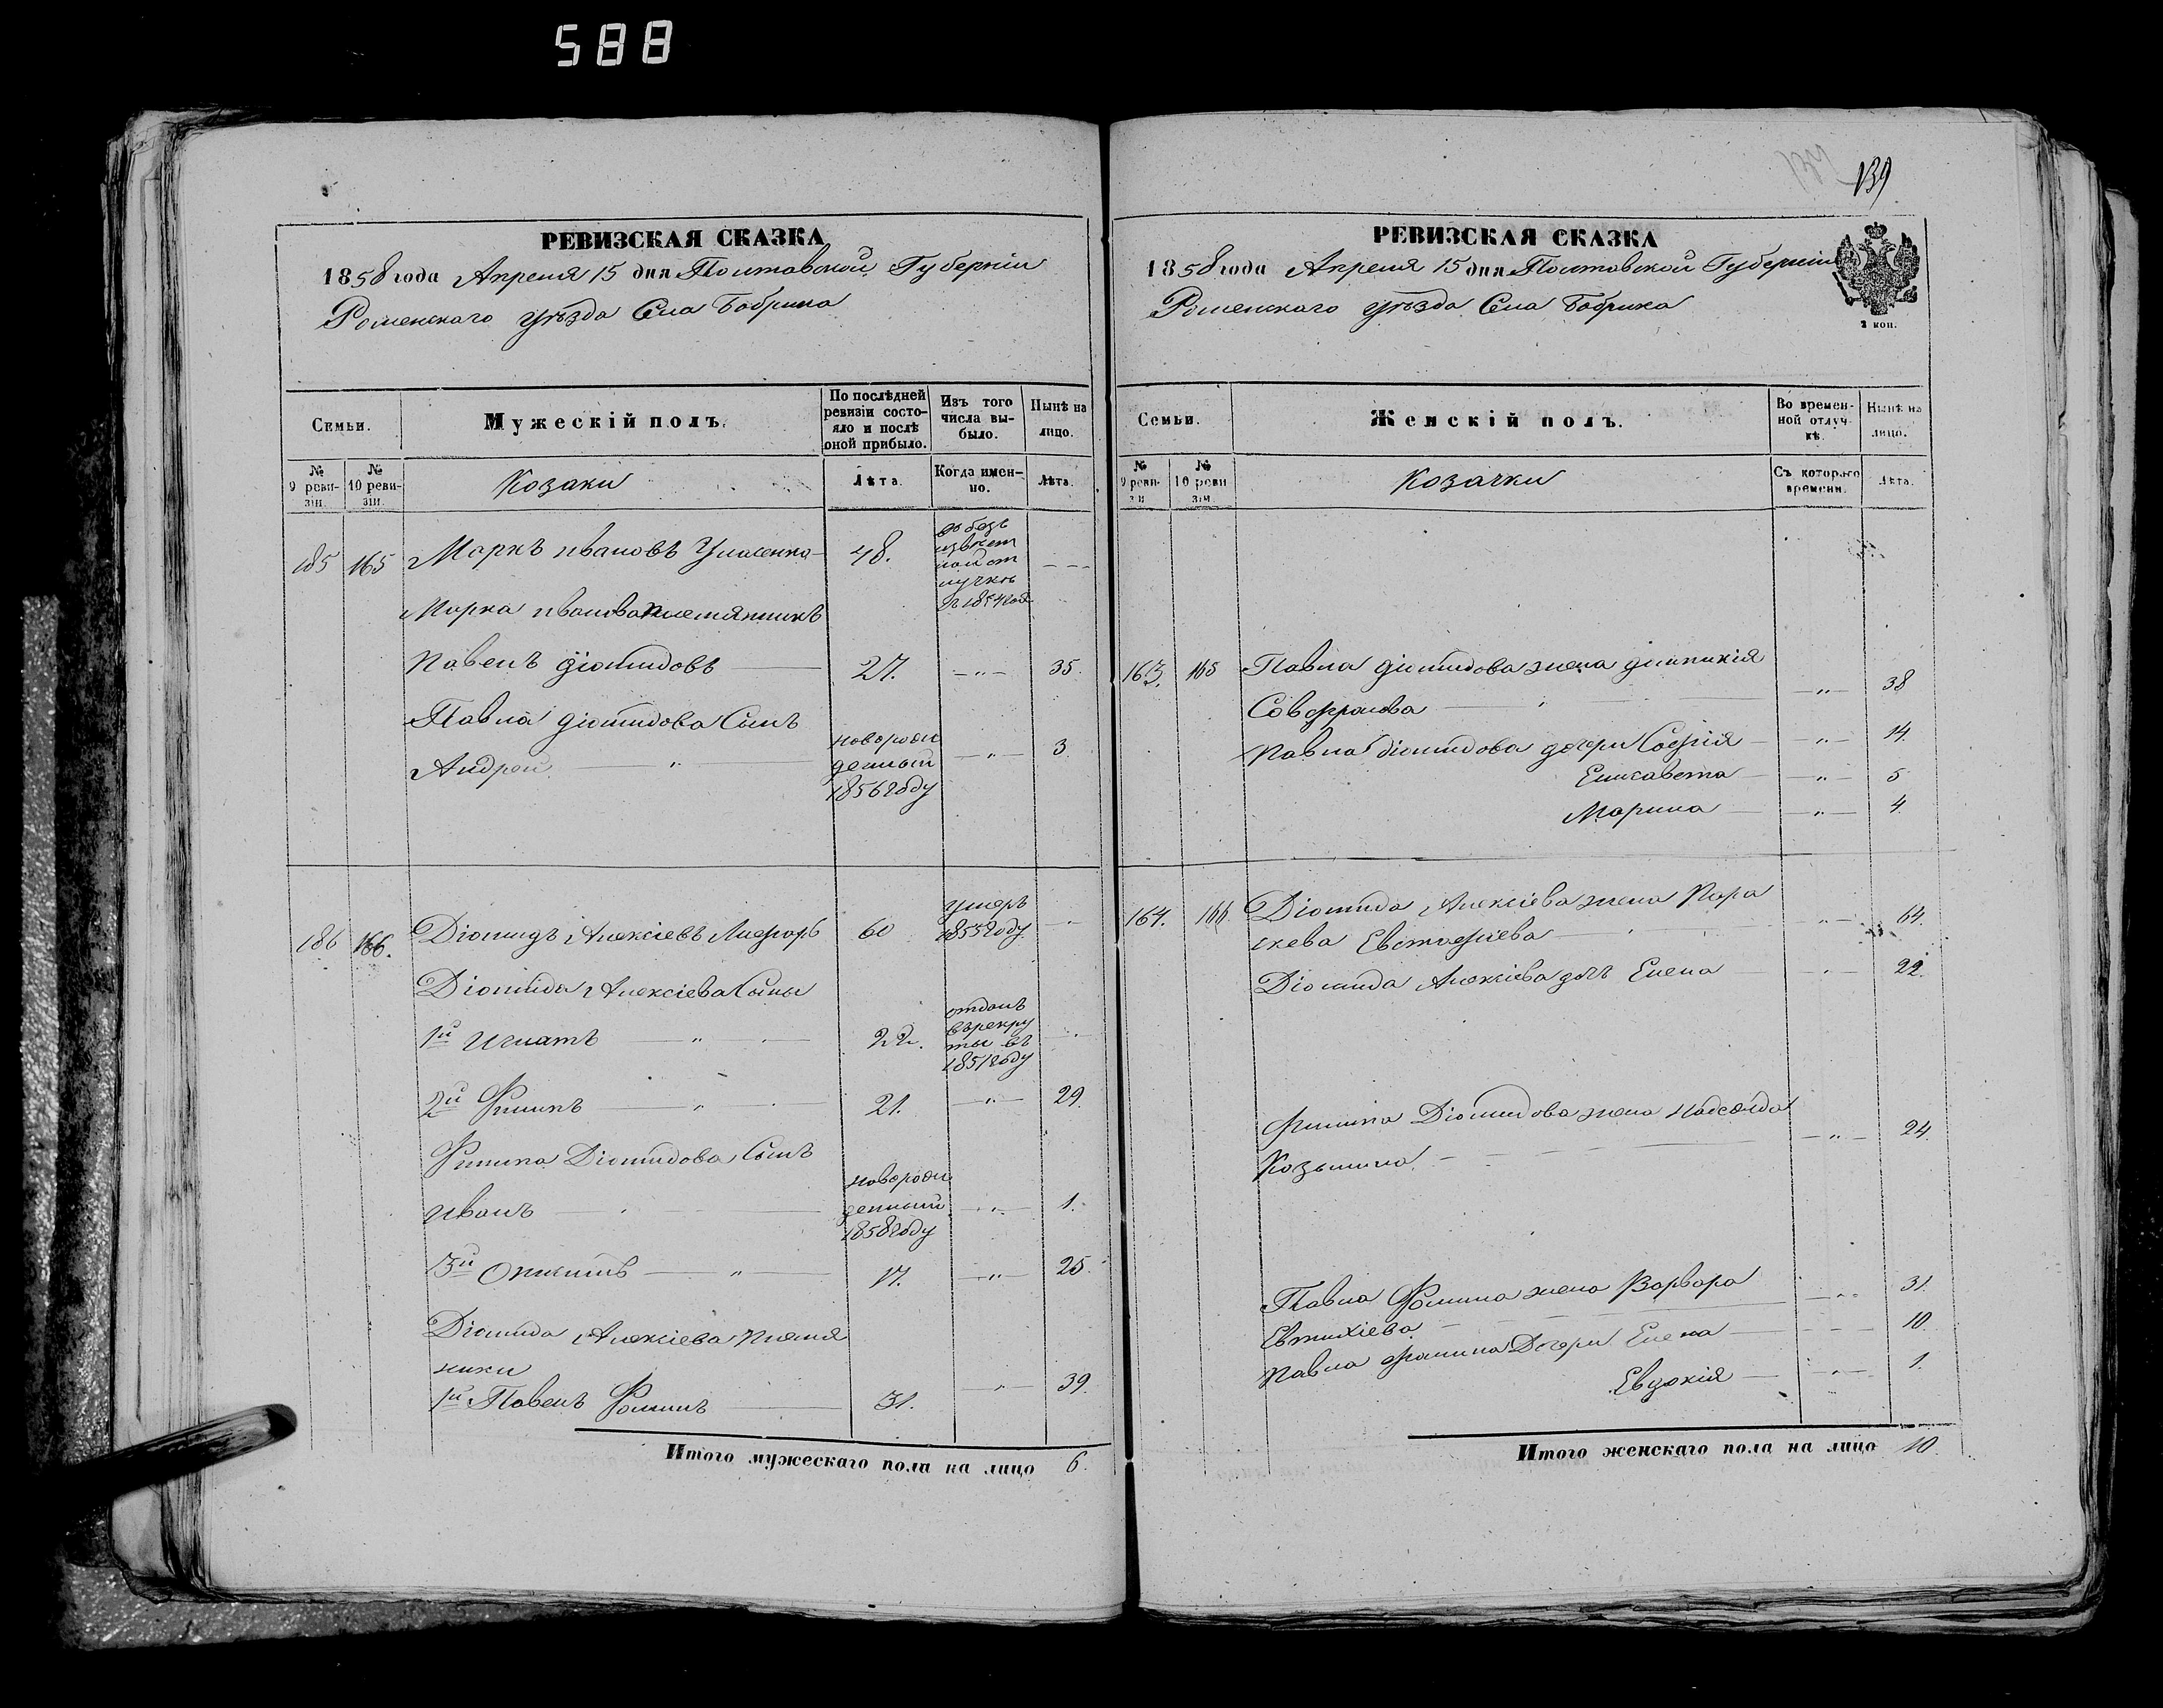 588
139
РЕВИЗСКАЯ СКАЗКА
1858 года Апреля 15 дня Полтавской Губерніи
Роменскаго уѣзда Села Бобрика
Семьи.
Мужескій полъ.
По послѣдней ревизіи состояло и послѣ оной прибыло.
Изъ того числа выбыло.
Нынѣ на лицо.
№ 9 ревизіи.
№ 10 ревизіи.
Козаки
Лѣта.
Когда именно.
Лѣта.
185 165 Маркъ ивановъ 48. въ безъ извѣстной отлучкѣ съ 1854 года
Марка иванова племянникъ
Павелъ Діомидовъ 27. —"— 35.
Павла Діомидова Сынъ
Андрей " новорожденный 1856 году —"— 3
186 166. Діомидъ Алексіевъ 60 умеръ 1855 году
Діомида Алексіева Сыны
1й Игнатъ " 22. отданъ въ рекруты въ 1851 году
2й Филипъ " 21. —"— 29.
Филипа Діомидова Сынъ
Иванъ новорожденный 1858 году —"— 1.
3й Онисимъ " 17. —"— 25.
Діомида Алексіева племя
ники
1й Павелъ Фоминъ 31. " 39.
Итого мужескаго пола на лицо 6.
РЕВИЗСКАЯ СКАЗКА
1858 года Апреля 15 дня Полтавской Губерніи
Роменскаго уѣзда Села Бобрика
2 коп.
Семьи.
Женскій полъ.
Во временной отлучкѣ.
Нынѣ на лицо.
№ 9 ревизіи
№ 10 ревизіи.
Козачки
Съ котораго времени.
Лѣта.
163. 165 Павла Діомидова жена
—"— 38
Павла Діомидова дочери Софія —"— 14.
Елисавета —"— 5
Марина —"— 4.
164. 166. Діомида Алексіева жена Пара
скева Евстафіева —"— 64.
Діомида Алексіева дочь Елена —"— 22.
Филипа Діомидова жена Надежда
Козьмина —"— 24.
Павла Фомина жена Варвара —"— 31.
Евтихіева
Павла Фомина Дочери Елена 10.
Евдокія —"— 1.
Итого женскаго пола на лицо 10.